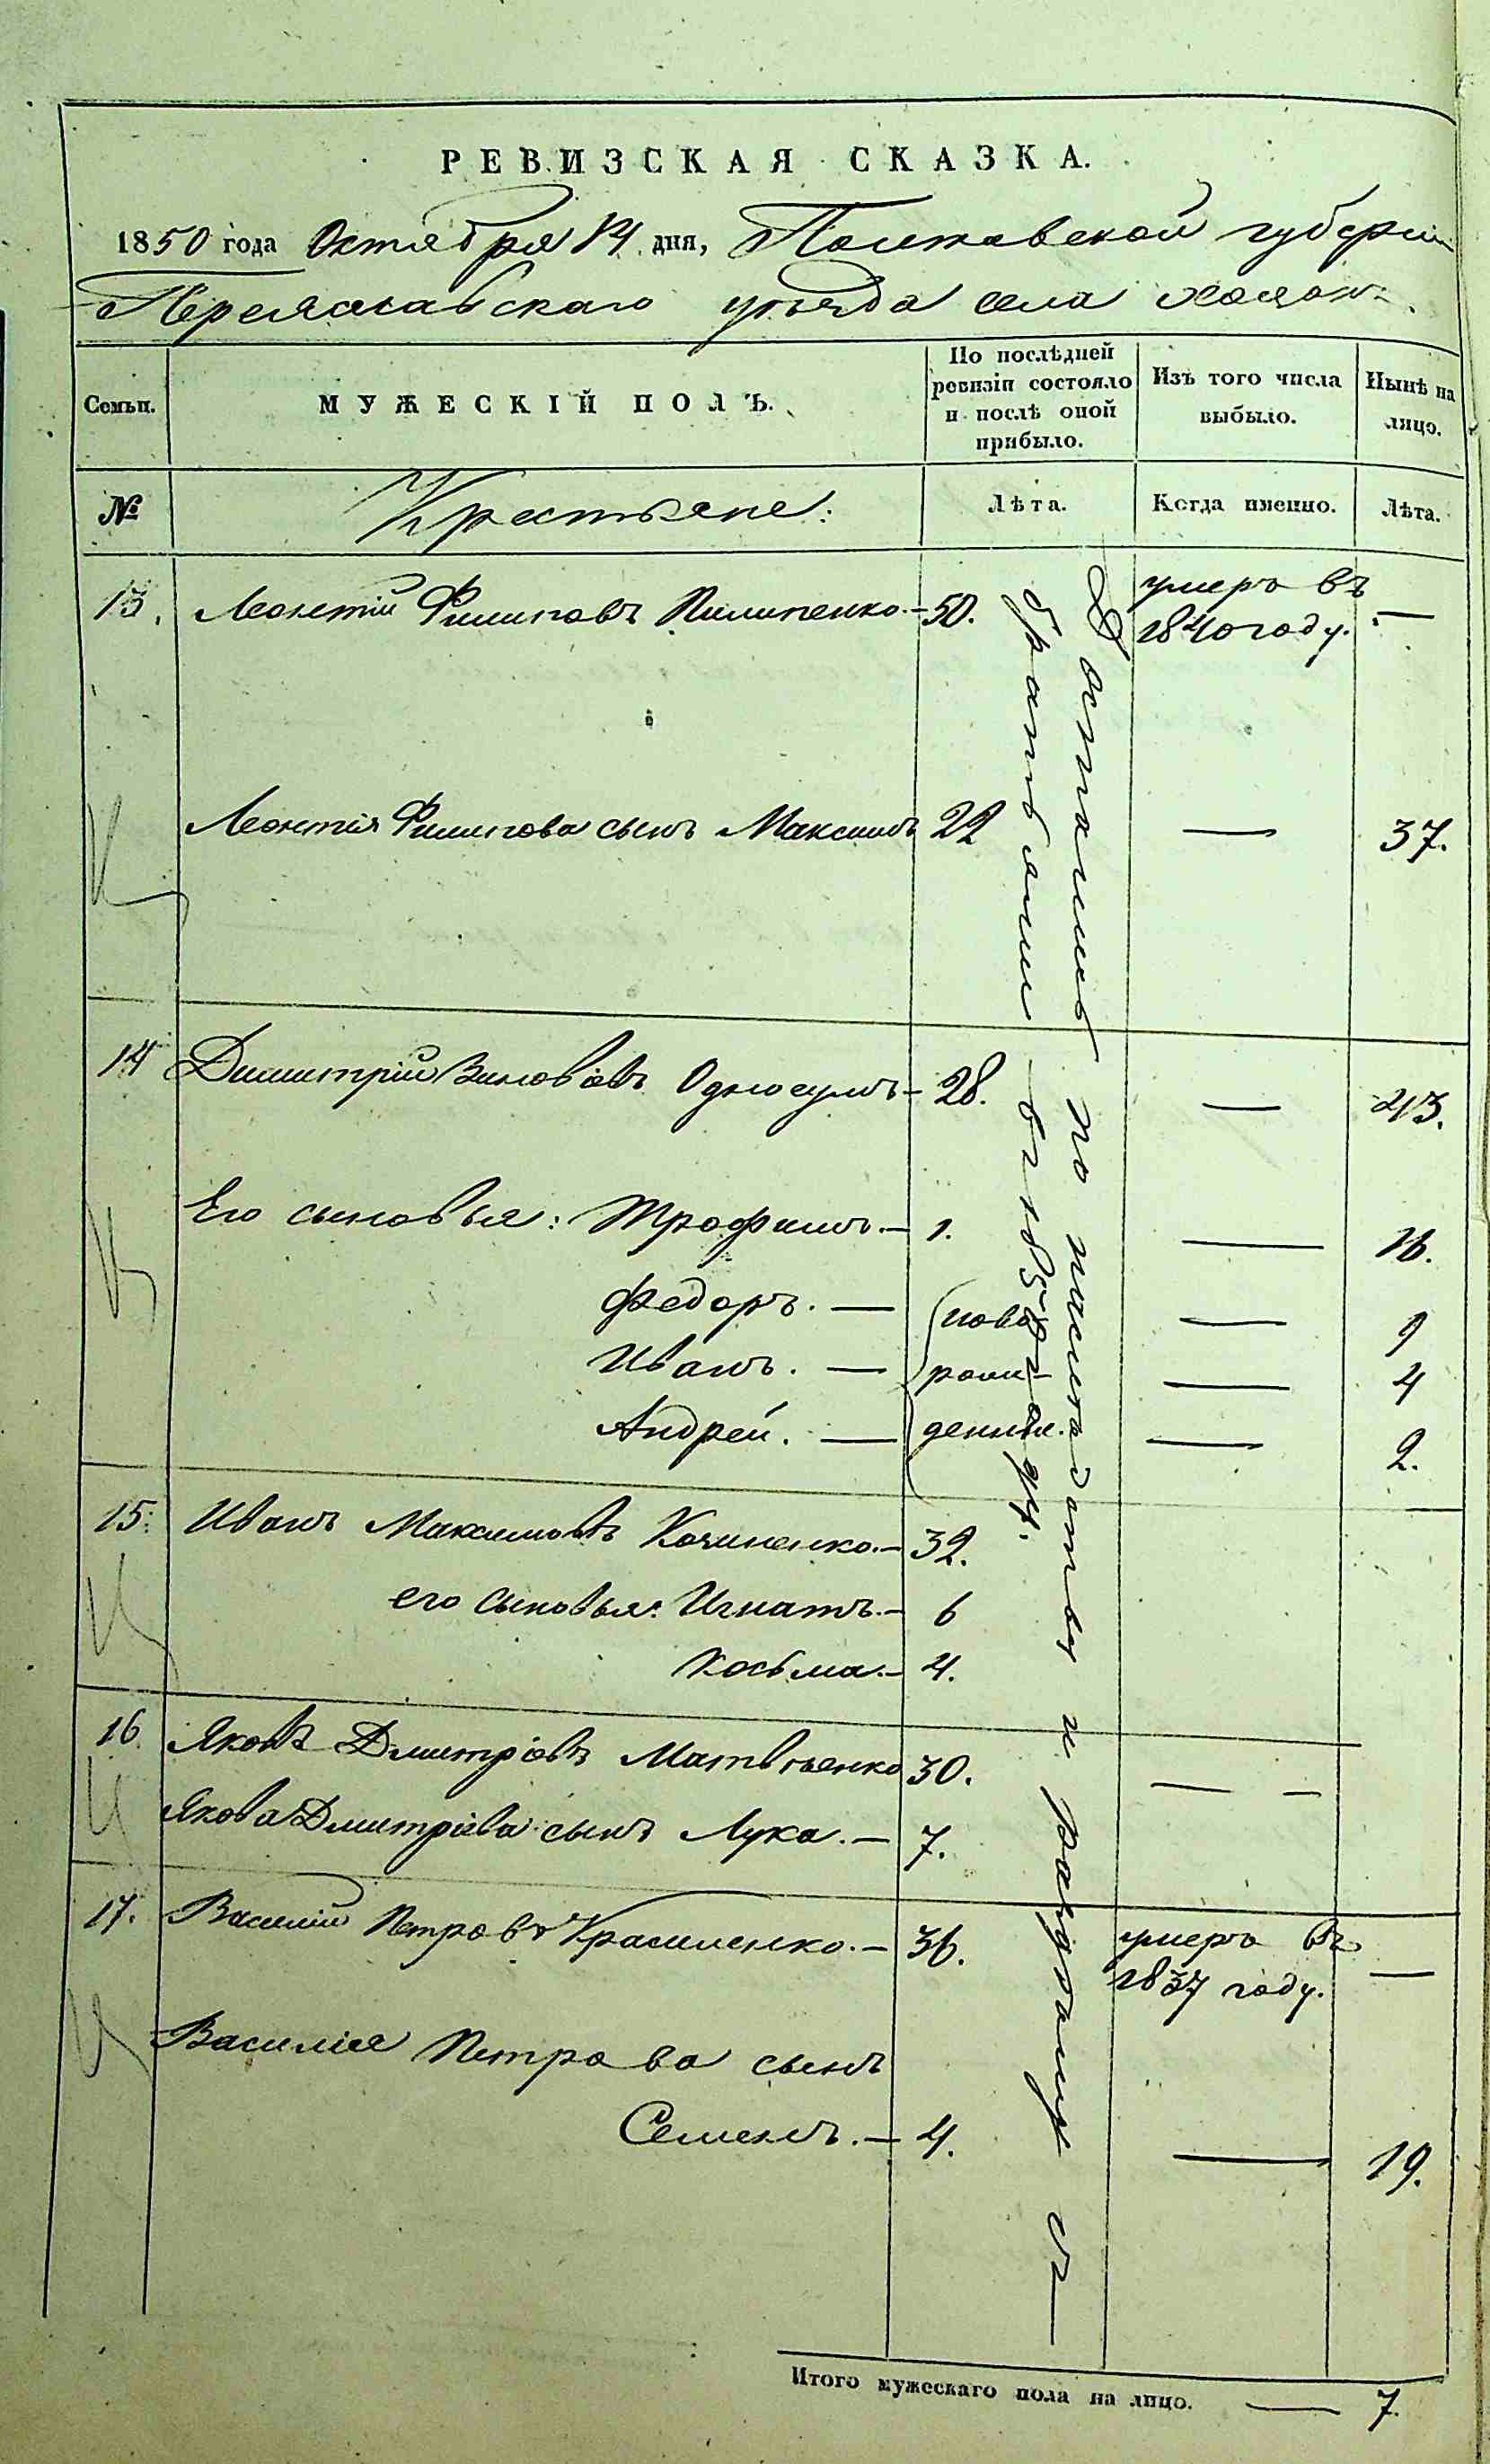 РЕВИЗСКАЯ СКАЗКА.
1850 года Октября 14 дня, Полтавской губерніи
Переяславскаго уѣзда села
Семьи.
МУЖЕСКІЙ ПОЛЪ.
По послѣдней
ревизіи состояло
и послѣ оной
прибыло.
Изъ того числа
выбыло.
Нынѣ на
лицо.
№
Крестьяне:
Лѣта.
Когда именно.
Лѣта.
13. Леонтій Филиповъ Пилипенко.— 50. умеръ въ —
1840 году.
Леонтія Филипова сынъ Максимъ 22 — 37.
14 Димитрій Зиновіевъ Односумъ— 28. — 43.
Его сыновья: Трофимъ.— 1. — 16.
Федоръ. — ново — 9
Иванъ. — рож- — 4
Андрей. — денные. — 2.
15. Иванъ Максимовъ Кочиненко.— 32.
его сыновья: Игнатъ.— 6
Косьма.— 4.
16. Яковъ Дмитріевъ Матвѣенко 30. — —
Якова Дмитріева сынъ Лука.— 7.
17. Василій Петровъ Красименко.— 36. умеръ въ —
1837 году.
Василія Петрова сынъ
Семенъ.— 4. — 19.
Достались по наслѣдству и раздѣлу съ
братьями въ году.
Итого мужескаго пола на лицо. — 7.